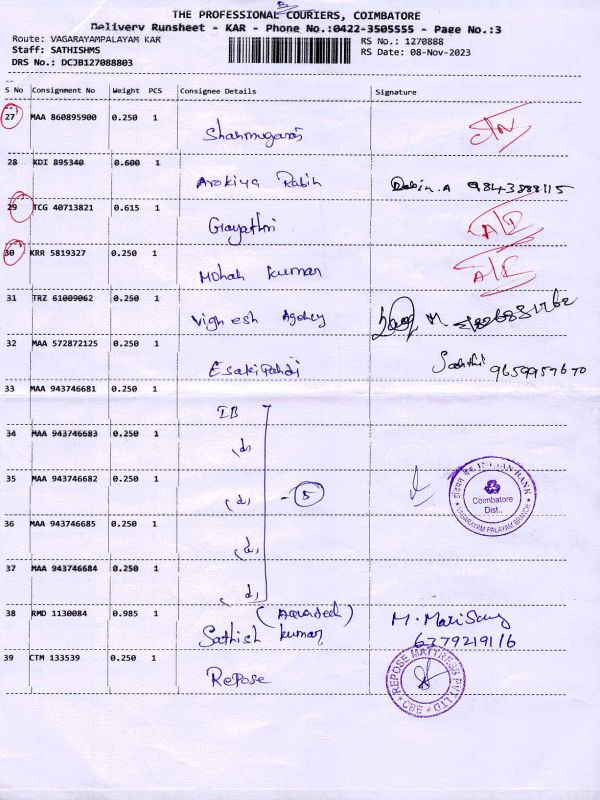 THE PROFESSIONAL COURIERS, COIMBATORE
Delivery Runsheet - KAR - Phone No.:0422-3505555 - Page No.:3
Route: VAGARAYAMPALAYAM KAR
RS No.: 1270888
Staff: SATHISHMS
RS Date: 08-Nov-2023
DRS No.: DCJB127088803
S No Consignment No Weight PCS Consignee Details Signature
27 MAA 860895900 0.250 1
Shanmugaraj
28 KDI 895340 0.600 1
Arokiya Rabin Rabin.A 9843888115
29 TCG 40713821 0.615 1
Gayathri A/I
30 KRR 5819327 0.250 1
Mohan kumar A/I
31 TRZ 61009062 0.250 1
Vighesh Agency M.
32 MAA 572872125 0.250 1
Esakipandi 9659957670
33 MAA 943746681 0.250 1
IB
34 MAA 943746683 0.250 1
do
35 MAA 943746682 0.250 1
do - 5
INDIAN BANK
Coimbatore
Dist..
VAGARAYAM PALAYAM BRANCH
36 MAA 943746685 0.250 1
do
37 MAA 943746684 0.250 1
do
38 RMD 1130084 0.985 1
(Aquatech)
Sathish kumar
6379219116
39 CTM 133539 0.250 1
Repose
REPOSE MATTRESS PVT LTD
CBE